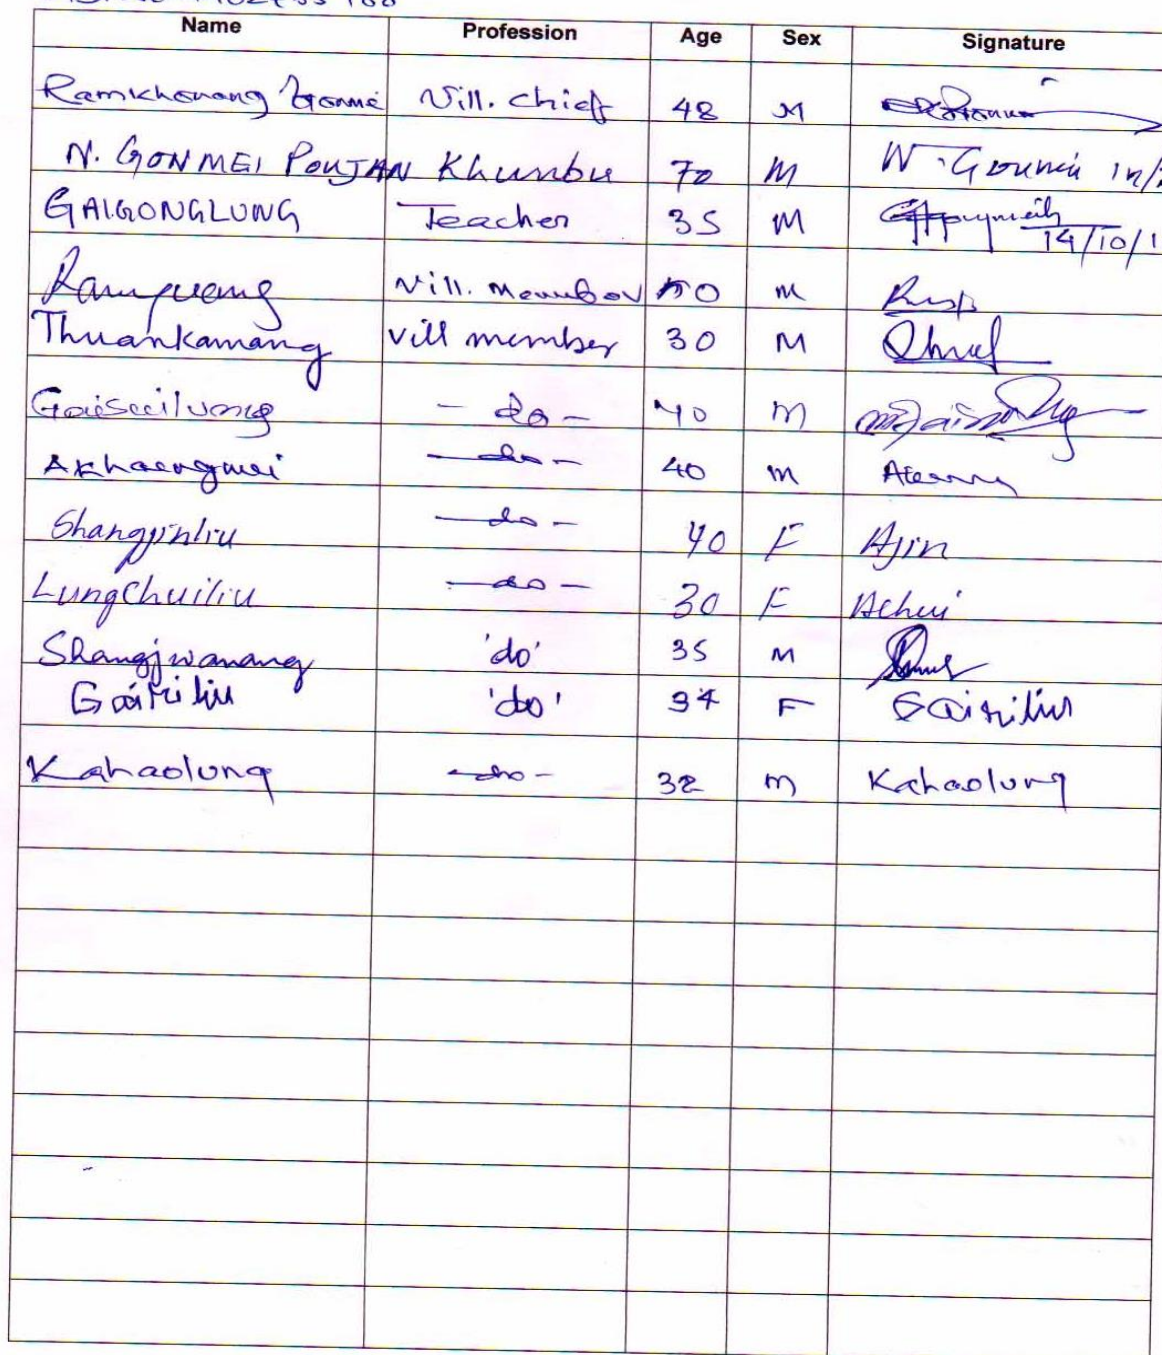 Name Profession Age Sex Signature
Ramkhonang Gonmei Vill. Chief 48 M
N. GONMEI POUJAN Khunbu 70 M N. Gonmei
GAIGONGLUNG Teacher 35 M 14/10/1
Vill. Member 50 M
Thuankamang Vill member 30 M
Gaiseilung - do - 40 M
Akhaengmei - do - 40 M
Shangjinliu - do - 40 F Ajin
Lungchuiliu - do - 30 F Achui
Shangjwanang 'do' 35 M
Gairiliu 'do' 34 F Gairiliu
Kahaolung - do - 32 M Kahaolung